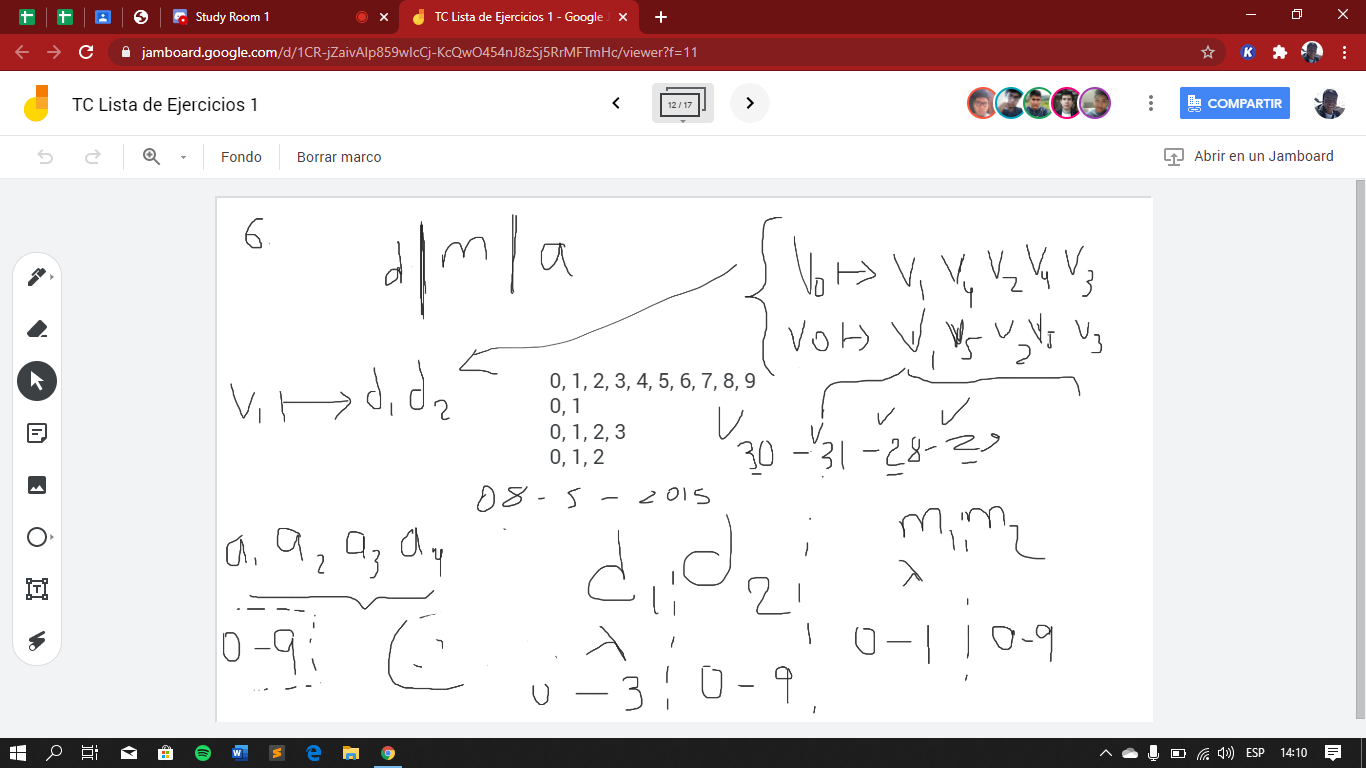 Study Room 1
TC Lista de Ejercicios 1 - Google J
jamboard.google.com/d/1CR-jZaivAlp859wIcCj-KcQwO454nJ8zSj5RrMFTmHc/viewer?f=11
TC Lista de Ejercicios 1
12 / 17
COMPARTIR
Fondo
Borrar marco
Abrir en un Jamboard
6.
d | m | a
V0 ↦ V1 V4 V2 V4 V3
V0 ↦ V1 V5 V2 V5 V3
V1 ↦ d1 d2
0, 1, 2, 3, 4, 5, 6, 7, 8, 9
0, 1
0, 1, 2, 3
0, 1, 2
30 - 31 - 28 - 29
08 - 5 - 2015
a1 a2 a3 a4
d1 d2
m1 m2
λ
λ
0 - 9
0 - 3 | 0 - 9
0 - 1 | 0 - 9
ESP
14:10